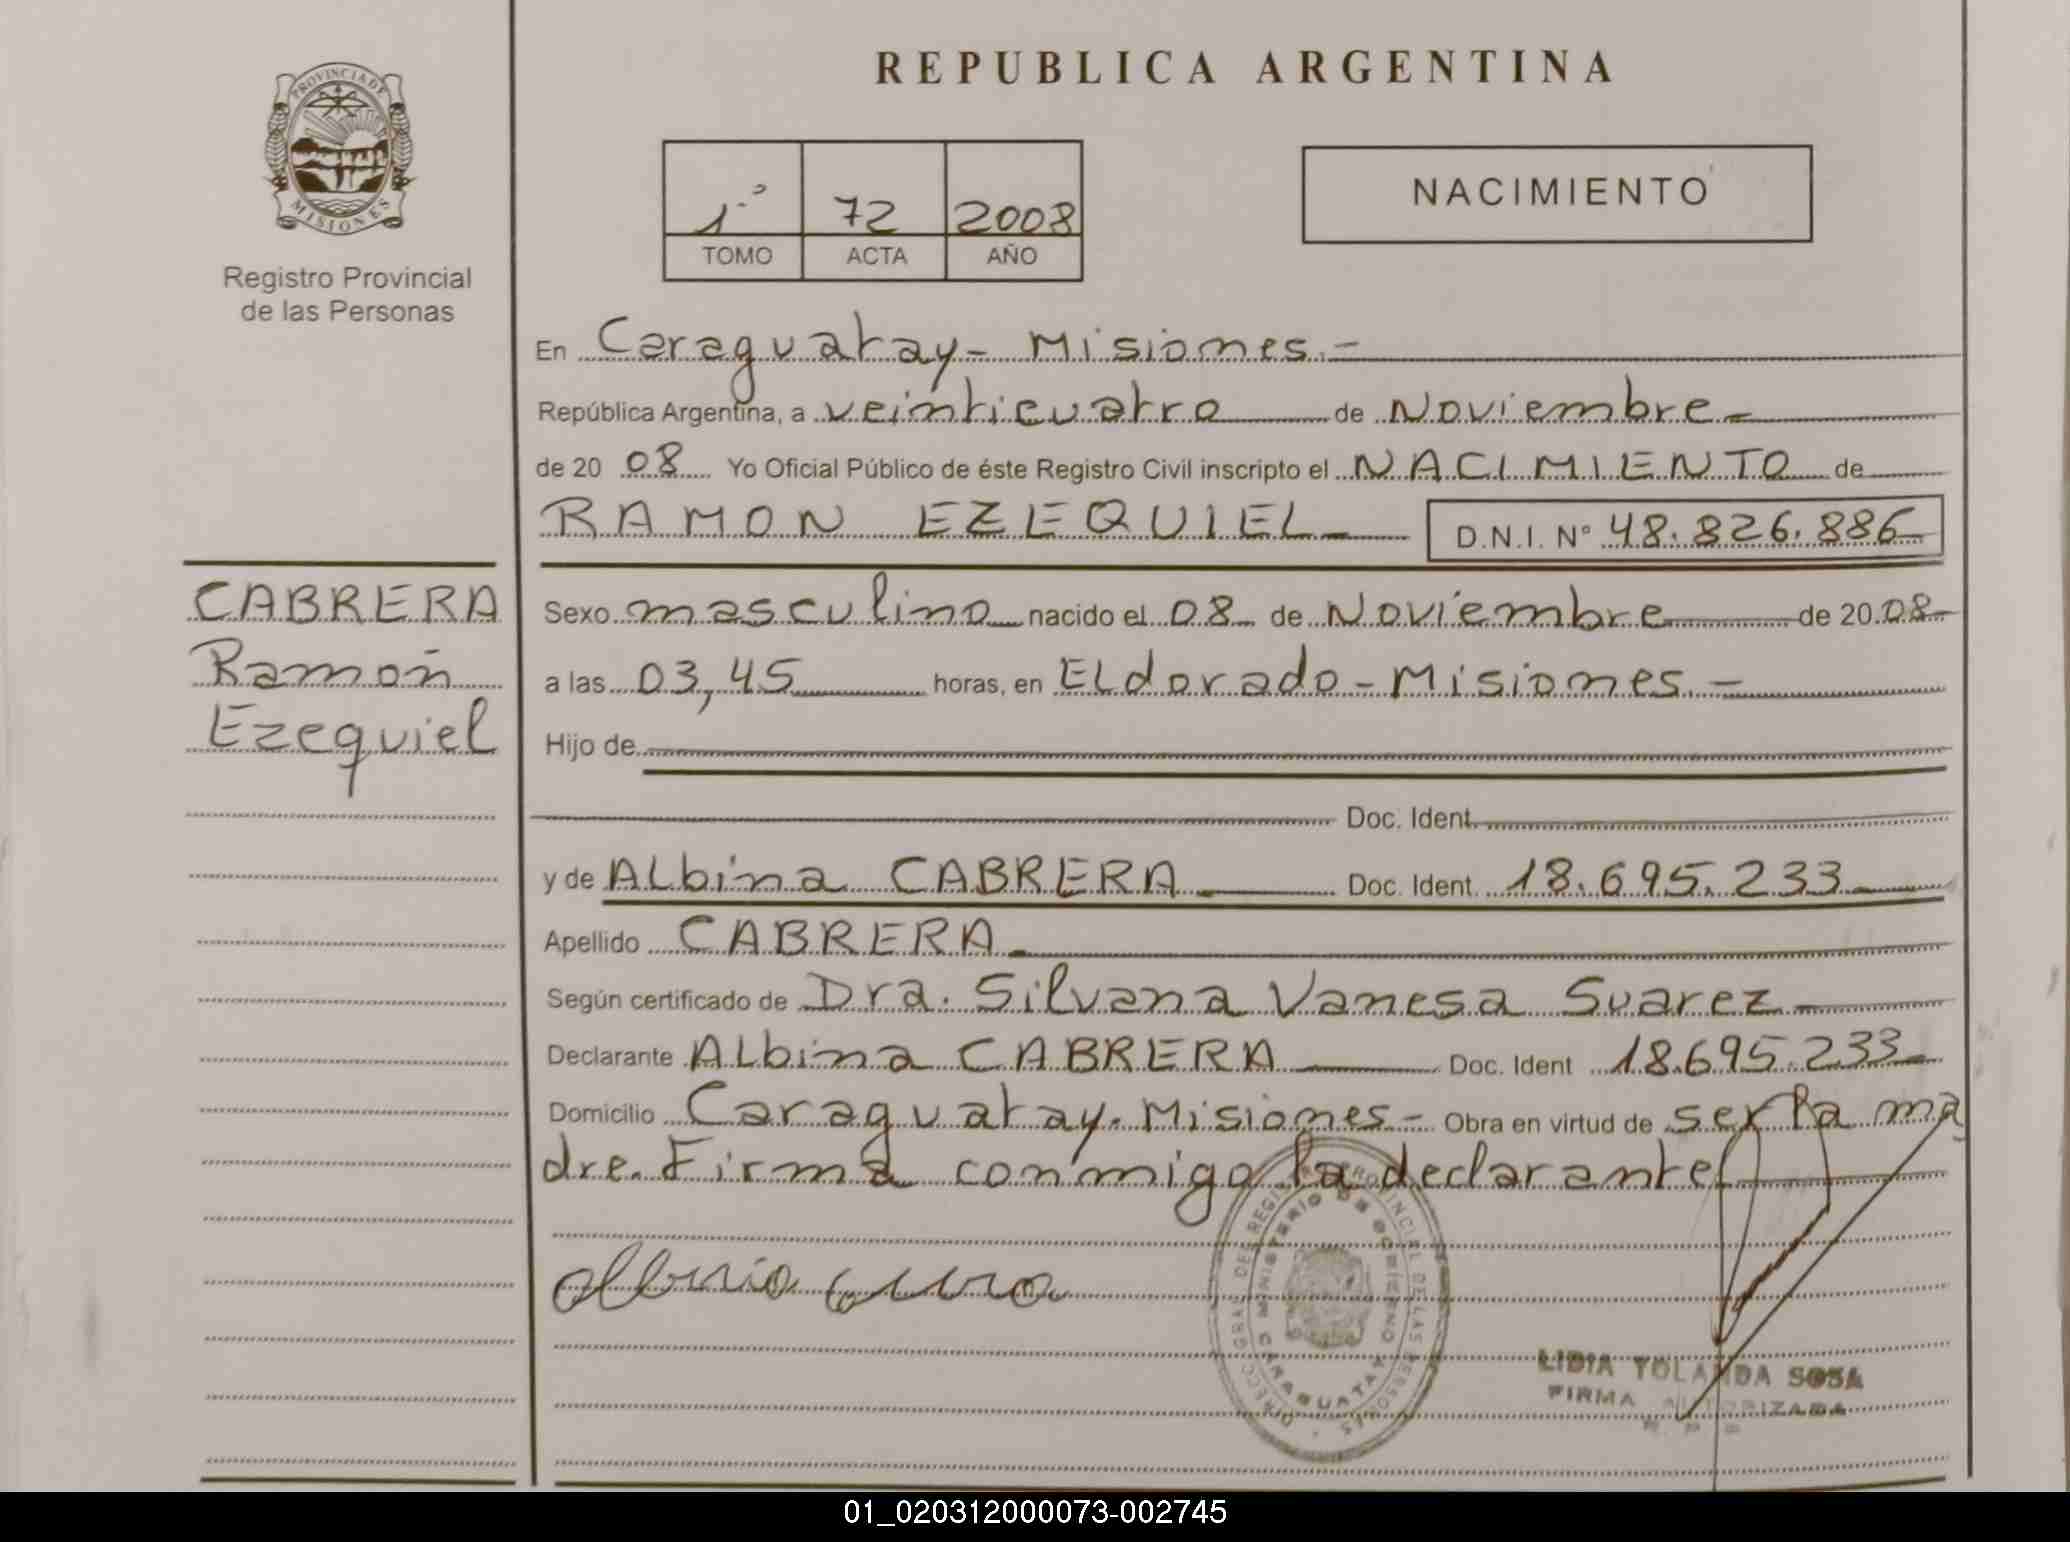 REPUBLICA ARGENTINA
PROVINCIA DE
MISIONES
Registro Provincial
de las Personas
1º 72 2008
TOMO ACTA AÑO
NACIMIENTO
En Caraguatay - Misiones.-
República Argentina, a veinticuatro de Noviembre-
de 20 08 Yo Oficial Público de éste Registro Civil inscripto el NACIMIENTO de
RAMON EZEQUIEL- D.N.I. Nº 48.826.886
CABRERA
Ramón
Ezequiel
Sexo masculino nacido el 08 de Noviembre de 20 08
a las 03,45 horas, en ELdorado - Misiones.-
Hijo de
Doc. Ident.
y de ALbina CABRERA Doc. Ident. 18.695.233
Apellido CABRERA
Según certificado de Dra. Silvana Vanesa Suarez
Declarante ALbina CABRERA Doc. Ident 18.695.233
Domicilio Caraguatay. Misiones- Obra en virtud de ser la ma
dre. Firma conmigo la declarante
MINISTERIO DE GOBIERNO
CARAGUATAY
LIDIA YOLANDA SOSA
FIRMA AUTORIZADA
R. P. P.
01_020312000073-002745